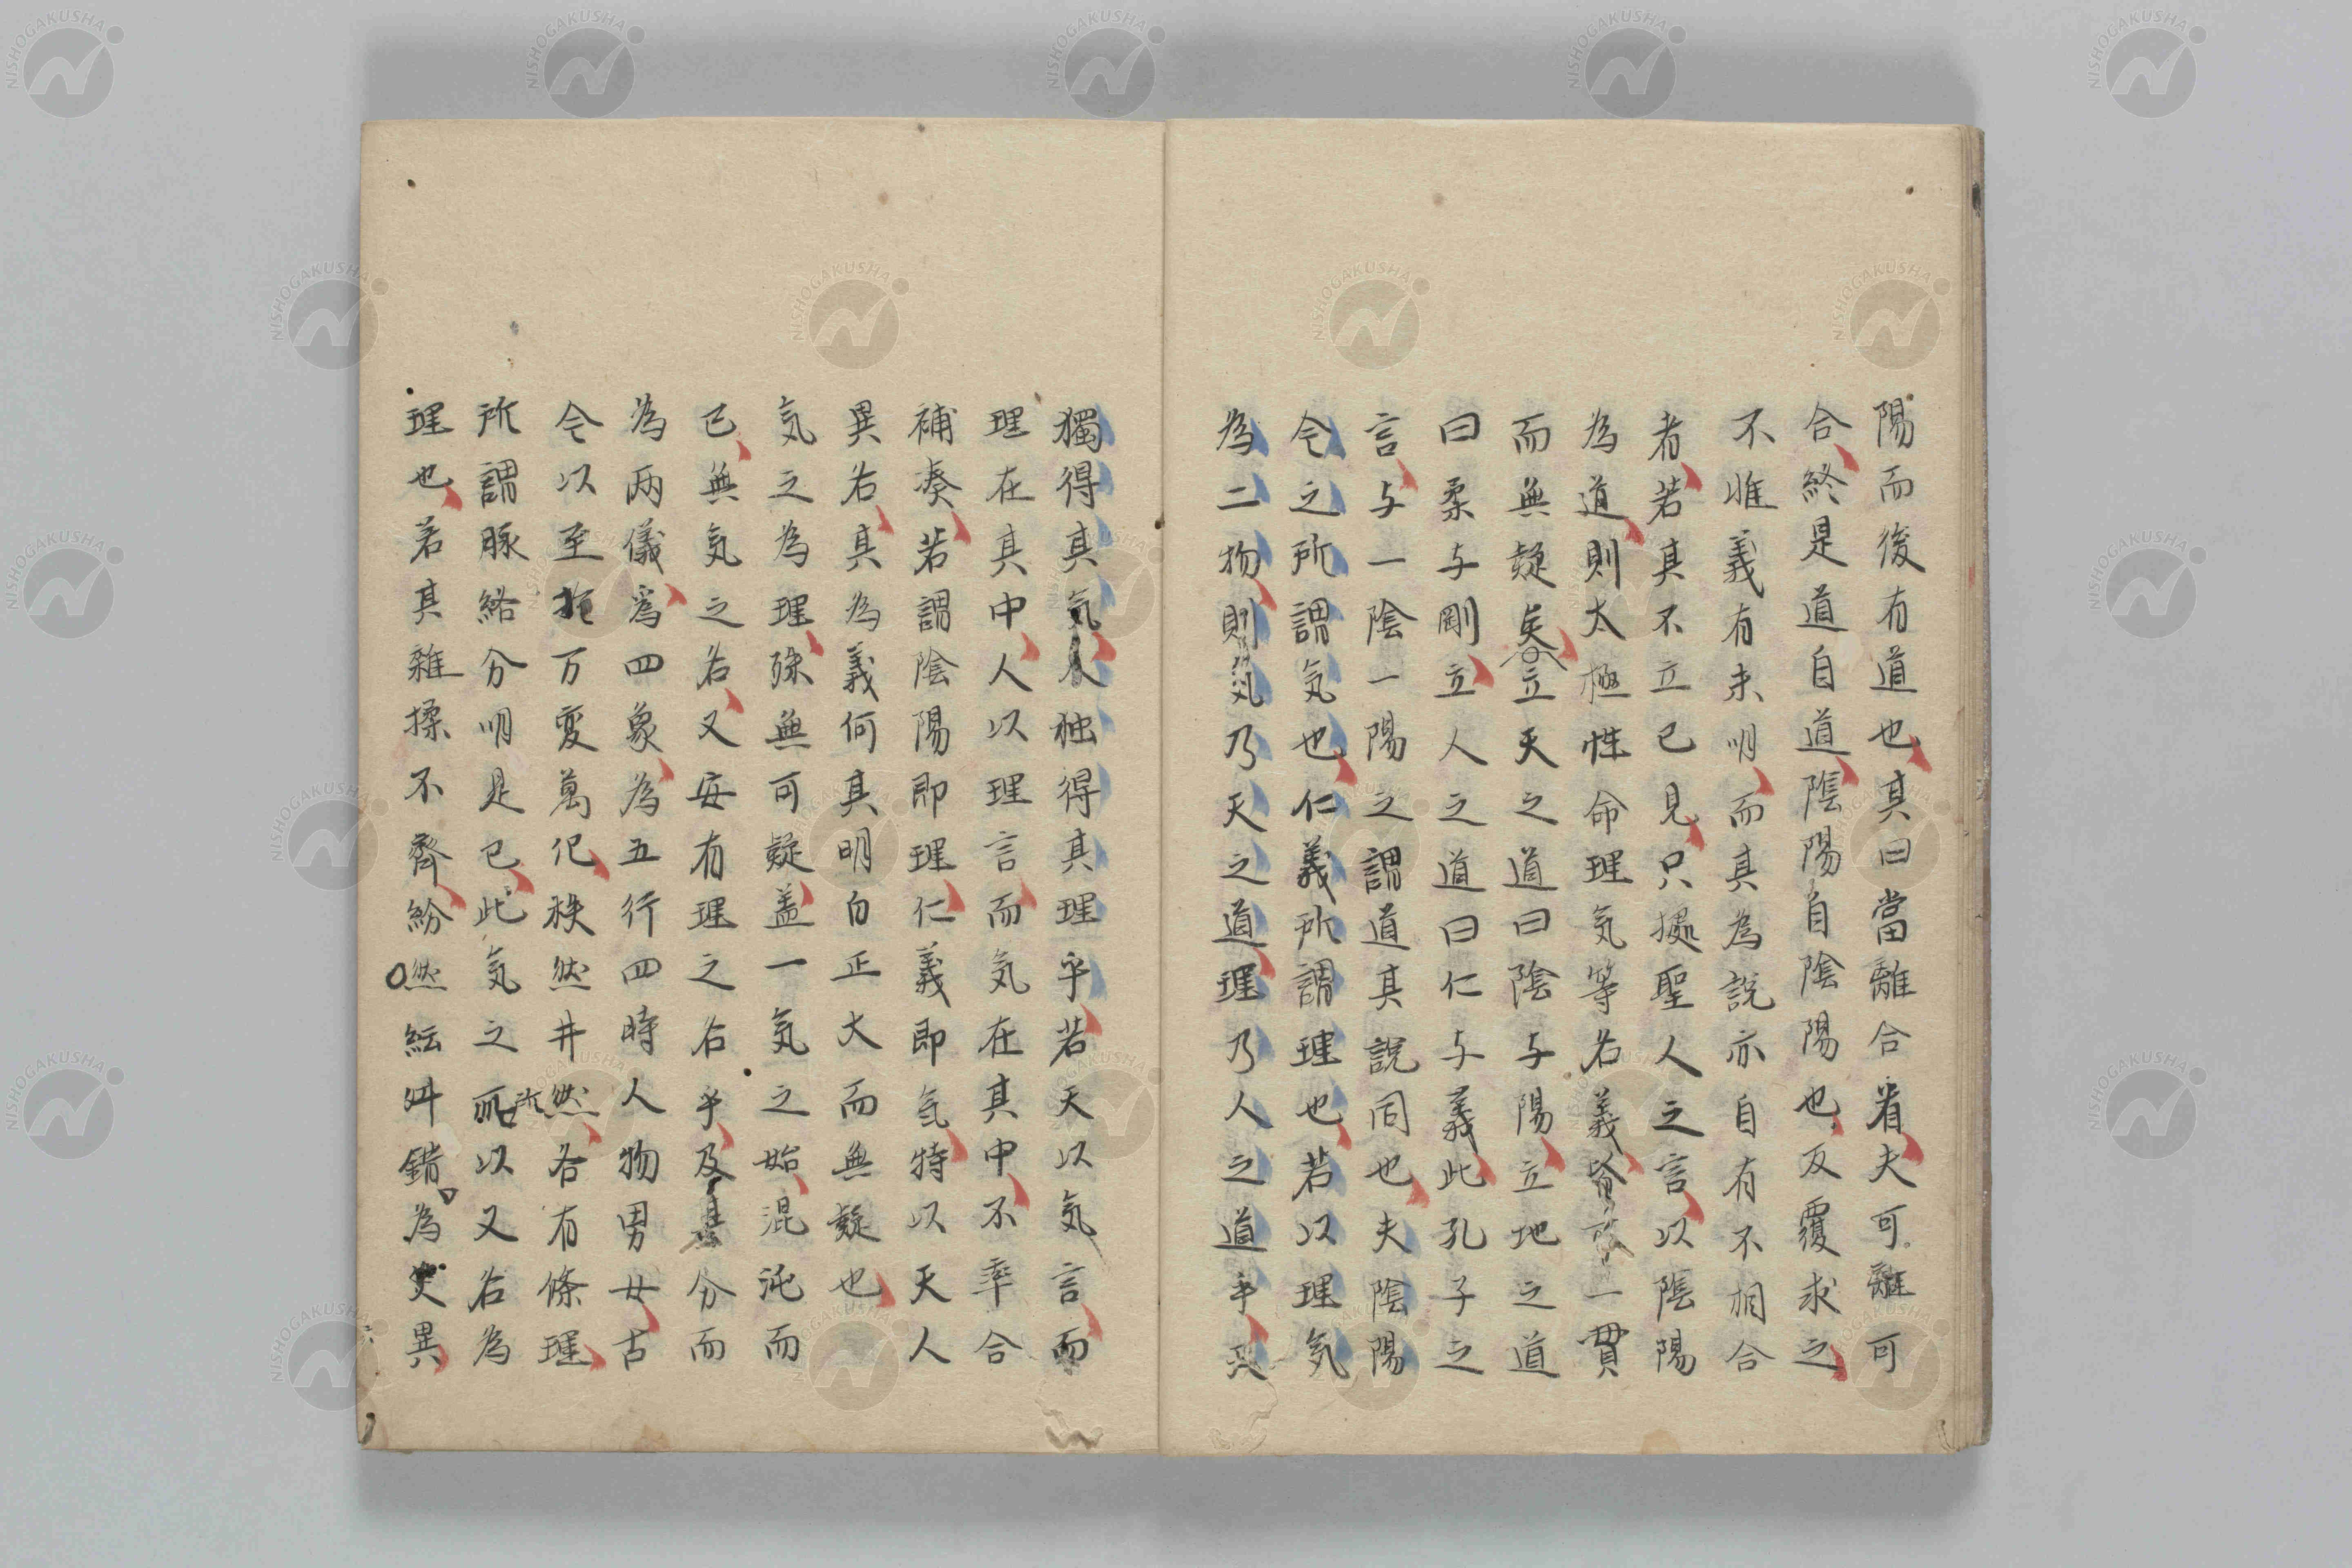 陽而後有道也其曰當離合者夫可離可
合終是道自道陰陽自陰陽也反覆求之
不惟義有未明而其為説亦自有不相合
者若其不立已見只據聖人之言以陰陽
為道則太極性命理気等名義皆一貫
而無疑矣立天之道曰陰与陽立地之道
曰柔与剛立人之道曰仁与義此孔子之
言与一陰一陽之謂道其説同也夫陰陽
今之所謂気也仁義所謂理也若以理気
為二物則気乃天之道理乃人之道乎天
獨得其気人独得其理乎若天以気言而
理在其中人以理言而気在其中不率合
補湊若謂陰陽即理仁義即気特以天人
異名其為義何其明白正大而無疑也
気之為理殊無可疑蓋一気之始混沌而
已無気之名又安有理之名乎及其分而
為兩儀為四象為五行四時人物男女古
今以至於万変萬化秩然井然各有條理
所謂脈絡分明是已此気之所以又名為
理也若其雜揉不齊紛然紜糾錯為災異
所
NISHOGAKUSHA